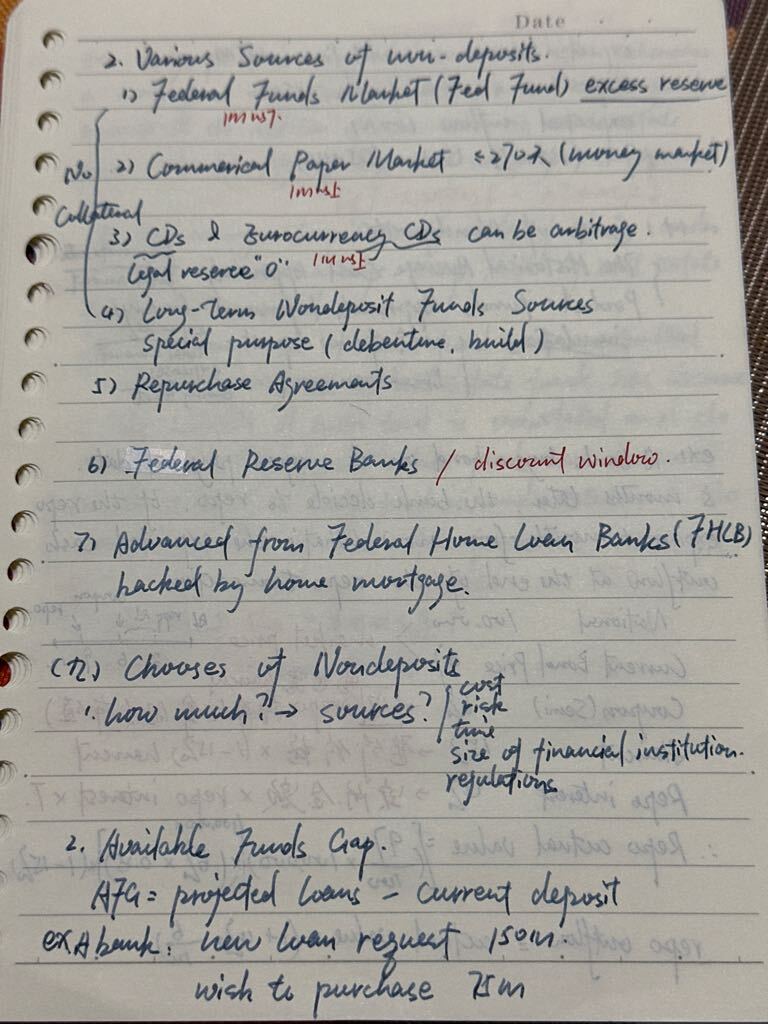 Date
2. Various Sources of non-deposits.
1) Federal Funds Market (Fed Fund) excess reserve
1m以下.
No Collateral
2) Commerical Paper Market ≤270天 (money market)
1m以上
3) CDs & Eurocurrency CDs can be arbitrage.
legal reserve "0".
1m以上
4) Long-Term Nondeposit Funds Sources
special purpose (debenture, build)
5) Repurchase Agreements
6) Federal Reserve Banks / discount window.
7) Advanced from Federal Home Loan Banks (FHLB)
backed by home mortgage.
(九) Chooses of Nondeposits
1. how much? → sources?
cost
risk
time
size of financial institution.
regulations
2. Available Funds Gap.
AFG = projected loans - current deposit
ex. A bank: new loan request 150m.
wish to purchase 75m